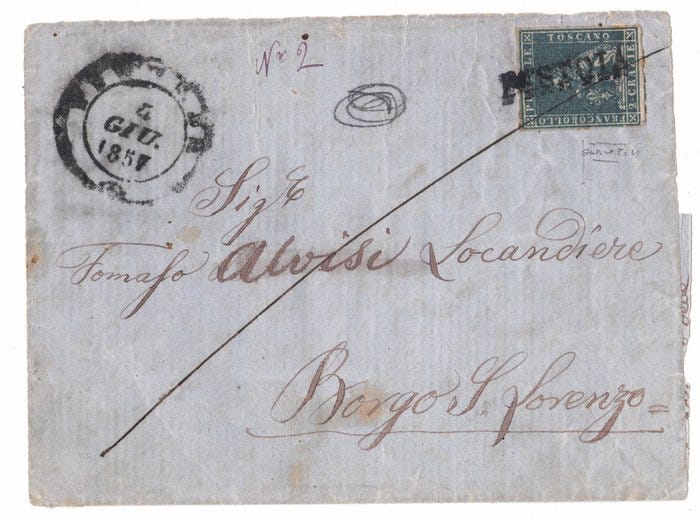 Nº 2
TOSCANO
FRANCOBOLLO
2 CRAZIE
PISTOIA
4
GIU.
1857
Sig.r
Tomaso Alvisi Locandiere
Borgo S. Lorenzo=